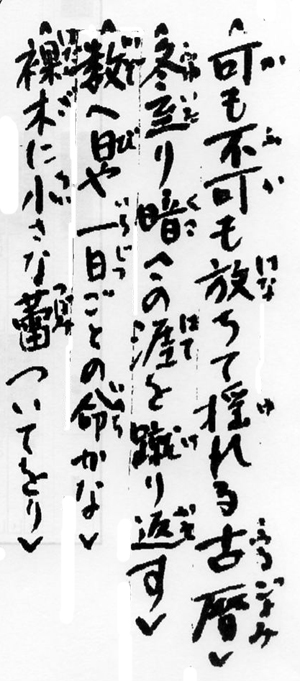 可も不可も放ちて揺れる古暦
冬至り暗への涯を蹴り返す
数へ日や一日ごとの命かな
裸木に小さな蕾ついてをり